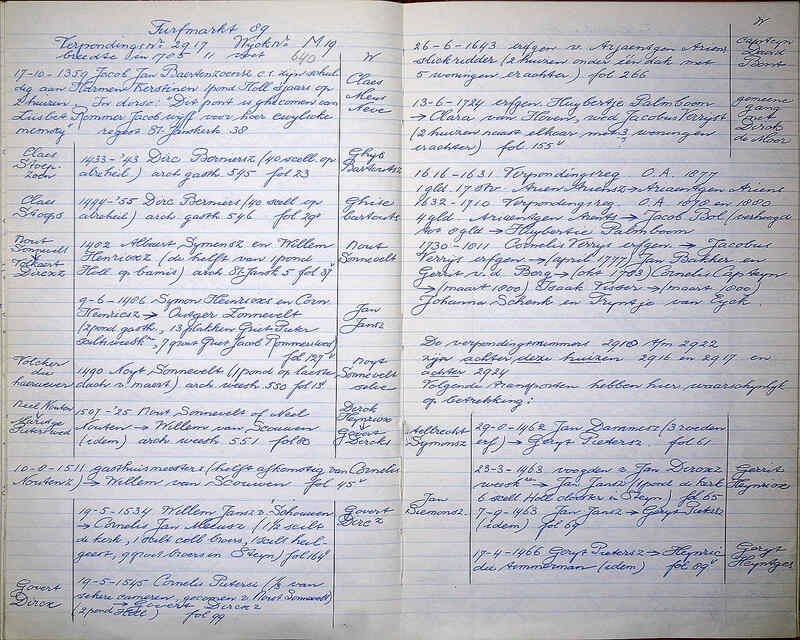 Turfmarkt 89
Verpondingsnr. 2917 Wijknr. M 19
breedte in 1785 11 voet 640
W
17-10-1359 Jacob Jan Baertenzoensz c.s. zijn schul
dig aan Harmen Kerstinen 1 pond Holl. sjaars op
2 huizen. In dorso: "Dit pont is ghecomen van
Lijsbet Rommer Jacob wijff voor hoer ewylicke
memory" regest St. Janskerk 38
Claes
Meus
Neve
Claes
Stoep-
zoen
1433-'43 Dirc Bermersz (40 scell. op
abscheil) arch gasth 545 fol 23
Ghijs
Bartoutsz
Claes
Stoeps
1444-'55 Dirc Bermers (40 scell op
abscheil) arch gasth 546 fol 29v
Ghise
bartouts
Nout
Sonnevelt
Volkaert
Dircxz
1482 Albaert Symonsz en Willem
Henricxz (de helft van 1 pond
Holl op bamis) arch St Jansk 5 fol 37v
Nout
Sonnevelt
9-6-1486 Symon Heinricxs en Corn
Heinricsz → Outger Zonnevelt
(2 pond gasth, 13 plakken Griet Pieter
, 7 groot Griet Jacob Rommerswed)
fol 127v
Jan
Jansz
Volcker
die
haerwever
1490 Noyt Sonnevelt (1 pond op laeste
dach v maert) arch weesh 550 fol 15v
Noyt
Sonnevelt
selve
Neel Nouten
Maritge
Pieterswed
1507-'25 Nout Sonnevelt of Neel
Nouten → Willem van Scouwen
(idem) arch weesh 551 fol 80
Dirck
Heynricxz
Govert
Dircks
10-8-1511 gasthuismeesters (helft afkomstig van Cornelis
Noutenz) → Willem van Scouwen fol 45v
19-5-1534 Willem Jansz v. Schouwen
→ Cornelis Jan Meeusz (1½ scilt
de kerk, 1 scilt coll broers, 1 scilt heil-
geest, 9 groot broers in Steyn) fol 164v
Govert
Dircz
Govert
Dircx
19-5-1545 Cornelis Pieters (1/6 van
sekere cameren, gecomen v. Nout Sonnevelt)
→ Govert Dircxz
(2 pond Holl) fol 99
W
26-6-1643 erfgen v. Arjaentgen Ariens
stickridder (2 huizen onder één dak met
5 woningen erachter) fol 266
Capiteyn
David
Bont
13-6-1724 erfgen. Huybertje Palmboom
→ Clara van Hoven, wed Jacobus Verryst
(2 huizen naast elkaar met 3 woningen
erachter) fol 155v
gemeene
gang
met
Dirck
de Moor
1616-1631 Verpondingsreg. O.A. 1877
1 gld. 17 st. Arien Ariensz → Ariaentgen Ariens
1632-1710 Verpondingsreg. O.A 1878 en 1880
4 gld. Ariaentgen Arents → Jacob Bol (verhoogd
tot 8 gld → Huybertie Palmboom
1730-1811 Cornelis Verrys erfgen. → Jacobus
Verrys erfgen → (april 1777) Jan Bakker en
Gerrit v.d. Berg → (okt 1783) Cornelis Capteyn
→ (maart 1800) Isaak Visser → (maart 1800)
Johanna Schenk en Fyntje van Eyck.
De verpondingsnummers 2918 t/m 2922
zijn achter deze huizen 2916 en 2917 en
achter 2924
Volgende transporten hebben hier waarschijnlijk
op betrekking:
Aelbrecht
Symonsz
29-8-1462 Jan Dammesz (3 roeden
erf) → Geryt Pietersz. fol 61
23-3-1463 voogden v. Jan Dircxz
weesk → Jan Jansz (1 pond de kerk
6 scell Holl clooster in Steyn) fol 65
7-9-1463 Jan Jansz → Geryt Pietersz
(idem) fol 69
Gerrit
Heynricxz
Jan
Siemonsz.
17-4-1466 Geryt Pietersz → Heynric
die timmerman (idem) fol 89v
Geryt
Heyntges